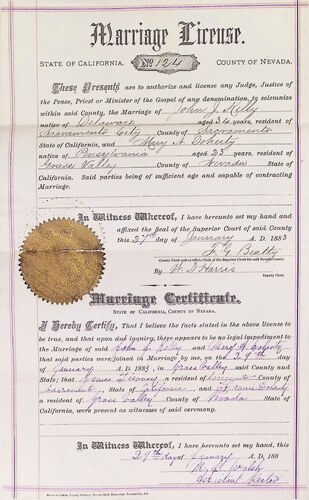 Marriage License.
STATE OF CALIFORNIA, No 124 COUNTY OF NEVADA.
These Presents are to authorize and license any Judge, Justice of
the Peace, Priest or Minister of the Gospel of any denomination, to solemnize
within said County, the Marriage of John J. Kelly
native of Delaware aged 34 years, resident of
Sacramento City County of Sacramento
State of California, and Mary A. Doherty
native of Pennsylvania aged 23 years, resident of
Grass Valley County of Nevada State of
California. Said parties being of sufficient age and capable of contracting
Marriage.
In Witness Whereof, I have hereunto set my hand and
affixed the Seal of the Superior Court of said County
this 27th day of January A. D. 1883
F. G. Beatty
County Clerk and ex officio Clerk of the Superior Court for said Nevada County.
By W. D. Harris
Deputy Clerk.
Marriage Certificate.
STATE OF CALIFORNIA, COUNTY OF NEVADA.
I Hereby Certify, That I believe the facts stated in the above license to
be true, and that upon due inquiry, there appears to be no legal impediment to
the Marriage of said John J. Kelly and Mary A. Doherty
that said parties were joined in Marriage by me, on the 29th day
of January A. D. 1883, in Grass Valley County and
State; that a resident of Sacramento County of
Sacramento, State of California, and Doherty
a resident of Grass Valley County of Nevada State of
California, were present as witnesses of said ceremony.
In Witness Whereof, I have hereunto set my hand this
29th day of January A. D. 1883
Walsh
Assistant Pastor